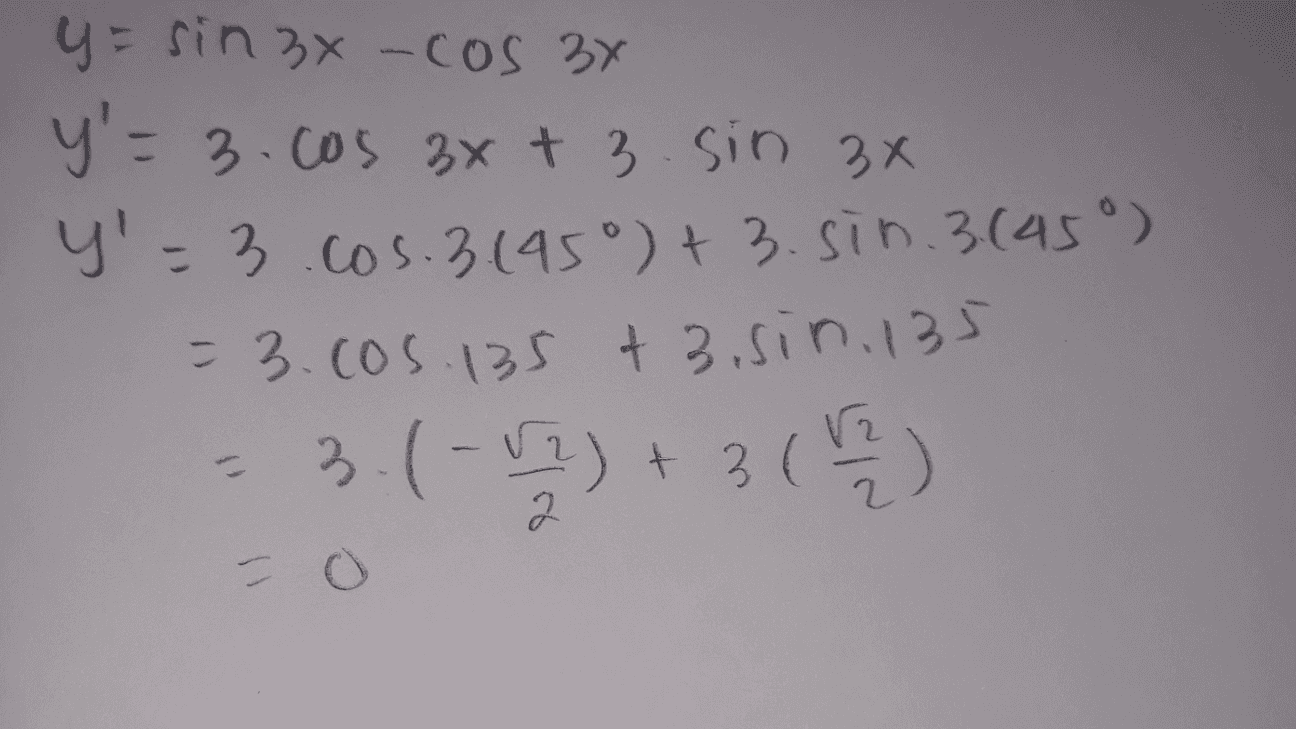 y = sin 3x - cos 3x
y' = 3. cos 3x + 3. sin 3x
y' = 3 .cos.3.(45°) + 3. sin.3.(45°)
= 3. cos.135 + 3.sin.135
= 3.(-√2/2) + 3(√2/2)
= 0